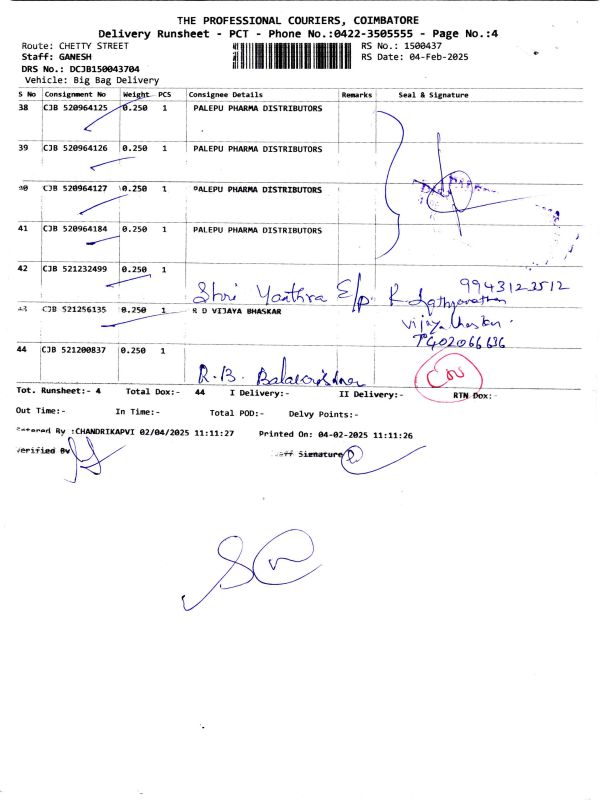 THE PROFESSIONAL COURIERS, COIMBATORE
Delivery Runsheet - PCT - Phone No.:0422-3505555 - Page No.:4
Route: CHETTY STREET RS No.: 1500437
Staff: GANESH RS Date: 04-Feb-2025
DRS No.: DCJB150043704
Vehicle: Big Bag Delivery
S No Consignment No Weight PCS Consignee Details Remarks Seal & Signature
38 CJB 520964125 0.250 1 PALEPU PHARMA DISTRIBUTORS
39 CJB 520964126 0.250 1 PALEPU PHARMA DISTRIBUTORS
40 CJB 520964127 0.250 1 PALEPU PHARMA DISTRIBUTORS
41 CJB 520964184 0.250 1 PALEPU PHARMA DISTRIBUTORS
42 CJB 521232499 0.250 1
Shri Yanthra E/p. 9943123512
43 CJB 521256135 0.250 1 R D VIJAYA BHASKAR
7402066636
44 CJB 521200837 0.250 1
R.B. Balakrishnan
Tot. Runsheet:- 4 Total Dox:- 44 I Delivery:- II Delivery:- RTN Dox:-
Out Time:- In Time:- Total POD:- Delvy Points:-
Entered By :CHANDRIKAPVI 02/04/2025 11:11:27 Printed On: 04-02-2025 11:11:26
Verified By Staff Signature